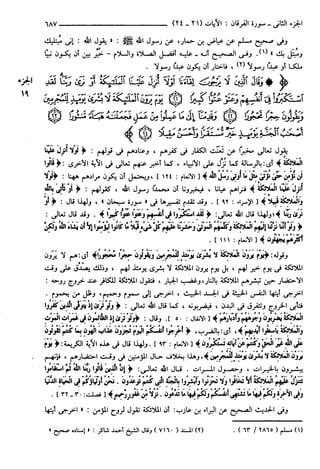 الجزء الثانى - سورة الفرقان : الآيات (٢١ - ٢٤)
٦٨٧
وفى صحيح مسلم عن عياض بن حمار، عن رسول الله ﷺ : « يقول الله : إنى مُبْتَليك
ومُبْتَلٍ بك » (١). وفى الصحيح أنه - عليه أفضل الصلاة والسلام - خُيِّر بين أن يكون نبيًا
ملكًا أو عبدًا رسولا (٢) ، فاختار أن يكون عبدًا رسولا .
الجزء
١٩
﴿ وَقَالَ الَّذِينَ لَا يَرْجُونَ لِقَاءَنَا لَوْلَا أُنزِلَ عَلَيْنَا الْمَلَائِكَةُ أَوْ نَرَىٰ رَبَّنَا لَقَدِ
اسْتَكْبَرُوا فِي أَنفُسِهِمْ وَعَتَوْ عُتُوًّا كَبِيرًا ۝ يَوْمَ يَرَوْنَ الْمَلَائِكَةَ لَا بُشْرَىٰ يَوْمَئِذٍ لِّلْمُجْرِمِينَ
وَيَقُولُونَ حِجْرًا مَّحْجُورًا ۝ وَقَدِمْنَا إِلَىٰ مَا عَمِلُوا مِنْ عَمَلٍ فَجَعَلْنَاهُ هَبَاءً مَّنثُورًا ۝
أَصْحَابُ الْجَنَّةِ يَوْمَئِذٍ خَيْرٌ مُّسْتَقَرًّا وَأَحْسَنُ مَقِيلًا ۝ ﴾
يقول تعالى مخبرًا عن تَعَنُّت الكفار فى كفرهم ، وعنادهم فى قولهم : ﴿ لَوْلَا أُنزِلَ عَلَيْنَا
الْمَلَائِكَةُ ﴾ أى: بالرسالة كما نُزِّل على الأنبياء ، كما أخبر عنهم تعالى فى الآية الأخرى: ﴿ قَالُوا
لَن نُّؤْمِنَ حَتَّىٰ نُؤْتَىٰ مِثْلَ مَا أُوتِيَ رُسُلُ اللَّهِ ﴾ [ الأنعام : ١٢٤ ] ، ويحتمل أن يكون مرادهم ههنا : ﴿ لَوْلَا
أُنزِلَ عَلَيْنَا الْمَلَائِكَةُ ﴾ فنراهم عيانا ، فيخبرونا أن محمدًا رسول الله ، كقولهم : ﴿ أَوْ تَأْتِيَ بِاللَّهِ
وَالْمَلَائِكَةِ قَبِيلًا ﴾ [ الإسراء : ٩٢ ] . وقد تقدم تفسيرها فى « سورة سبحان » ، ولهذا قال : ﴿ أَوْ
نَرَىٰ رَبَّنَا ﴾ ؛ ولهذا قال الله تعالى: ﴿ لَقَدِ اسْتَكْبَرُوا فِي أَنفُسِهِمْ وَعَتَوْ عُتُوًّا كَبِيرًا ﴾ . وقد قال تعالى :
﴿ وَلَوْ أَنَّنَا نَزَّلْنَا إِلَيْهِمُ الْمَلَائِكَةَ وَكَلَّمَهُمُ الْمَوْتَىٰ وَحَشَرْنَا عَلَيْهِمْ كُلَّ شَيْءٍ قُبُلًا مَّا كَانُوا لِيُؤْمِنُوا إِلَّا أَن يَشَاءَ اللَّهُ وَلَٰكِنَّ
أَكْثَرَهُمْ يَجْهَلُونَ ﴾ [ الأنعام : ١١١ ] .
وقوله: ﴿ يَوْمَ يَرَوْنَ الْمَلَائِكَةَ لَا بُشْرَىٰ يَوْمَئِذٍ لِّلْمُجْرِمِينَ وَيَقُولُونَ حِجْرًا مَّحْجُورًا ﴾ أى: هم لا يَرَون
الملائكة فى يوم خير لهم ، بل يوم يرون الملائكة لا بشرى يومئذ لهم ، وذلك يَصدُق على وقت
الاحتضار حين تبشرهم الملائكة بالنار، وغضب الجبار، فتقول الملائكة للكافر عند خروج روحه :
اخرجى أيتها النفس الخبيثة فى الجسد الخبيث ، اخرجى إلى سموم وحميم، وظل من يحموم .
فتأبى الخروج وتتفرق فى البدن ، فيضربونه ، كما قال الله تعالى : ﴿ وَلَوْ تَرَىٰ إِذْ يَتَوَفَّى الَّذِينَ كَفَرُوا
الْمَلَائِكَةُ يَضْرِبُونَ وُجُوهَهُمْ وَأَدْبَارَهُمْ ﴾ [ الأنفال : ٥٠ ]. وقال : ﴿ وَلَوْ تَرَىٰ إِذِ الظَّالِمُونَ فِي غَمَرَاتِ الْمَوْتِ
وَالْمَلَائِكَةُ بَاسِطُو أَيْدِيهِمْ ﴾ أى: بالضرب، ﴿ أَخْرِجُوا أَنفُسَكُمُ الْيَوْمَ تُجْزَوْنَ عَذَابَ الْهُونِ بِمَا كُنتُمْ تَقُولُونَ
عَلَى اللَّهِ غَيْرَ الْحَقِّ وَكُنتُمْ عَنْ آيَاتِهِ تَسْتَكْبِرُونَ ﴾ [ الأنعام : ٩٣ ] ؛ ولهذا قال فى هذه الآية الكريمة: ﴿ يَوْمَ
يَرَوْنَ الْمَلَائِكَةَ لَا بُشْرَىٰ يَوْمَئِذٍ لِّلْمُجْرِمِينَ ﴾ ، وهذا بخلاف حال المؤمنين فى وقت احتضارهم ، فإنهم
يبشرون بالخيرات ، وحصول المسرات . قال الله تعالى: ﴿ إِنَّ الَّذِينَ قَالُوا رَبُّنَا اللَّهُ ثُمَّ اسْتَقَامُوا
تَتَنَزَّلُ عَلَيْهِمُ الْمَلَائِكَةُ أَلَّا تَخَافُوا وَلَا تَحْزَنُوا وَأَبْشِرُوا بِالْجَنَّةِ الَّتِي كُنتُمْ تُوعَدُونَ . نَحْنُ أَوْلِيَاؤُكُمْ فِي الْحَيَاةِ الدُّنْيَا
وَفِي الْآخِرَةِ وَلَكُمْ فِيهَا مَا تَشْتَهِي أَنفُسُكُمْ وَلَكُمْ فِيهَا مَا تَدَّعُونَ . نُزُلًا مِّنْ غَفُورٍ رَّحِيمٍ ﴾ [ فصلت: ٣٠ - ٣٢ ] .
وفى الحديث الصحيح عن البراء بن عازب: أن الملائكة تقول لروح المؤمن : « اخرجى أيتها
(١) مسلم ( ٢٨٦٥ / ٦٣ ) .
(٢) المسند ( ٧١٦٠ ) وقال الشيخ أحمد شاكر : « إسناده صحيح »